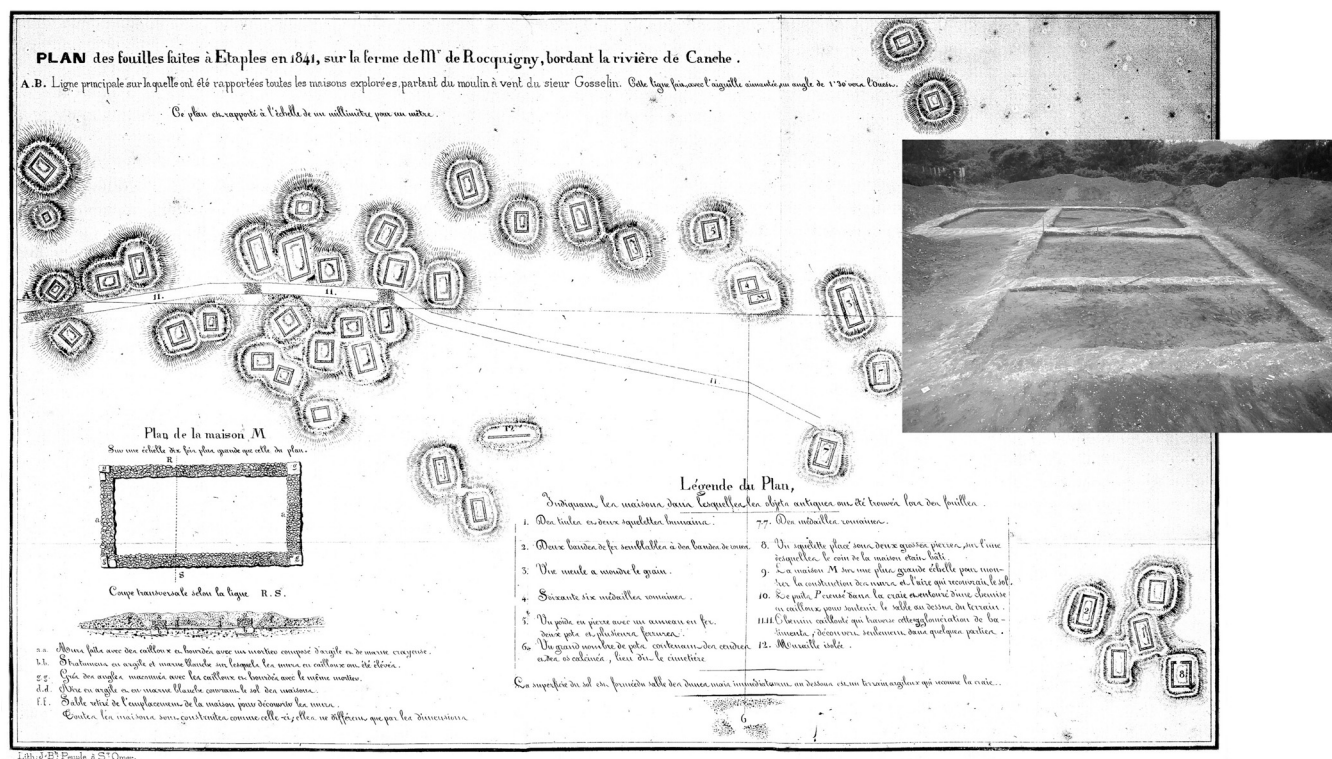 PLAN des fouilles faites à Etaples en 1841, sur la ferme de Mr de Rocquigny, bordant la rivière de Canche.
A.B. Ligne principale sur laquelle ont été rapportées toutes les maisons explorées, partant du moulin à vent du sieur Gosselin. Cette ligne fait, avec l'aiguille aimantée, un angle de 1°30 vers l'Ouest.
Ce plan est rapporté à l'échelle de un millimètre pour un mètre.
A
11.
11.
11
3
4
3
7
7
12.
Plan de la maison M
Sur une échelle dix fois plus grande que celle du plan.
R
g
g
a
a
S
Coupe transversale selon la ligne R.S.
a.a. Murs faits avec des cailloux et bourdés avec un mortier composé d'argile et de marne crayeuse.
b.b. Stratumens en argile et marne blanche sur lesquels les murs en cailloux ont été élevés.
g.g. Grès des angles maçonnés avec les cailloux et bourdés avec le même mortier.
d.d. Aire en argile et en marne blanche couvrant le sol des maisons.
f.f. Sable retiré de l'emplacement de la maison pour découvrir les murs.
Toutes les maisons sont construites comme celle-ci, elles ne diffèrent que par les dimensions
Légende du Plan,
Indiquant les maisons dans lesquelles les objets antiques ont été trouvés lors des fouilles.
1. Des tuiles et deux squelettes humains.
2. Deux bandes de fer semblables à des bandes de roues.
3. Une meule a moudre le grain.
4. Soixante six médailles romaines.
5. Un poids en pierre avec un anneau en fer, deux pots et plusieurs ferrures.
6. Un grand nombre de pots contenant des cendres et des os calcinés, lieu dit le cimetière
7.7. Des médailles romaines.
8. Un squelette placé sous deux grosses pierres, sur l'une desquelles le coin de la maison était bâti.
9. La maison M sur une plus grande échelle pour montrer la construction des murs et l'aire qui recouvrait le sol.
10. Le puits P creusé dans la craie et entouré d'une chemise en cailloux pour soutenir le sable au dessus du terrain.
11.11. Chemin caillouté qui traverse cette agglomération de batiments, découvert seulement dans quelques parties.
12. Muraille isolée.
La superficie du sol est formée du sable des dunes mais immédiatement au dessous est un terrain argileux qui recouvre la craie.
8
6
Lith. J. Bte
à St Omer.